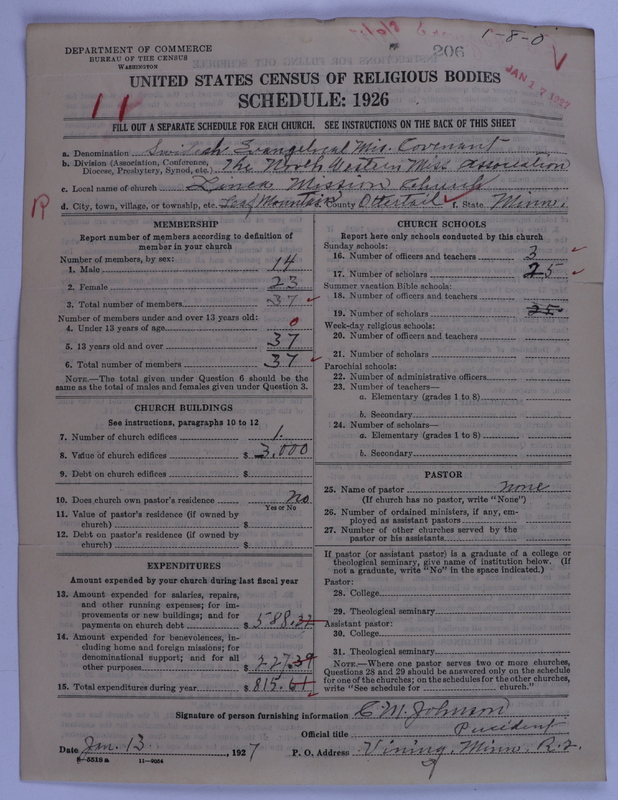 1-8-0
206
DEPARTMENT OF COMMERCE
BUREAU OF THE CENSUS
WASHINGTON
JAN 17 1927
UNITED STATES CENSUS OF RELIGIOUS BODIES
SCHEDULE: 1926
11
FILL OUT A SEPARATE SCHEDULE FOR EACH CHURCH. SEE INSTRUCTIONS ON THE BACK OF THIS SHEET
a. Denomination Swedish Evangelical Mis. Covenant
b. Division (Association, Conference, Diocese, Presbytery, Synod, etc.) The North Western Miss Association
c. Local name of church Mission Church
d. City, town, village, or township, etc. Leaf Mountain County Ottertail f. State Minn.
R
MEMBERSHIP
Report number of members according to definition of
member in your church
Number of members, by sex:
1. Male 14
2. Female 23
3. Total number of members 37
Number of members under and over 13 years old:
4. Under 13 years of age 0
5. 13 years old and over 37
6. Total number of members 37
NOTE.—The total given under Question 6 should be the
same as the total of males and females given under Question 3.
CHURCH BUILDINGS
See instructions, paragraphs 10 to 12
7. Number of church edifices 1
8. Value of church edifices $ 3,000
9. Debt on church edifices $
10. Does church own pastor's residence No
Yes or No
11. Value of pastor's residence (if owned by
church) $
12. Debt on pastor's residence (if owned by
church) $
EXPENDITURES
Amount expended by your church during last fiscal year
13. Amount expended for salaries, repairs,
and other running expenses; for im-
provements or new buildings; and for
payments on church debt $ 588.27
14. Amount expended for benevolences, in-
cluding home and foreign missions; for
denominational support; and for all
other purposes $ 227.34
15. Total expenditures during year $ 815.61
CHURCH SCHOOLS
Report here only schools conducted by this church
Sunday schools:
16. Number of officers and teachers 3
17. Number of scholars 25
Summer vacation Bible schools:
18. Number of officers and teachers
19. Number of scholars 25
Week-day religious schools:
20. Number of officers and teachers
21. Number of scholars
Parochial schools:
22. Number of administrative officers
23. Number of teachers—
a. Elementary (grades 1 to 8)
b. Secondary
24. Number of scholars—
a. Elementary (grades 1 to 8)
b. Secondary
PASTOR
25. Name of pastor none
(If church has no pastor, write "None")
26. Number of ordained ministers, if any, em-
ployed as assistant pastors
27. Number of other churches served by the
pastor or his assistants
If pastor (or assistant pastor) is a graduate of a college or
theological seminary, give name of institution below. (If
not a graduate, write "No" in the space indicated.)
Pastor:
28. College
29. Theological seminary
Assistant pastor:
30. College
31. Theological seminary
NOTE.—Where one pastor serves two or more churches,
Questions 28 and 29 should be answered only on the schedule
for one of the churches; on the schedules for the other churches,
write "See schedule for church."
Signature of person furnishing information C. M. Johnson
Official title President
Date Jan. 13, 1927 P. O. Address Vining, Minn. R. 2.
8-5518a 11-9054